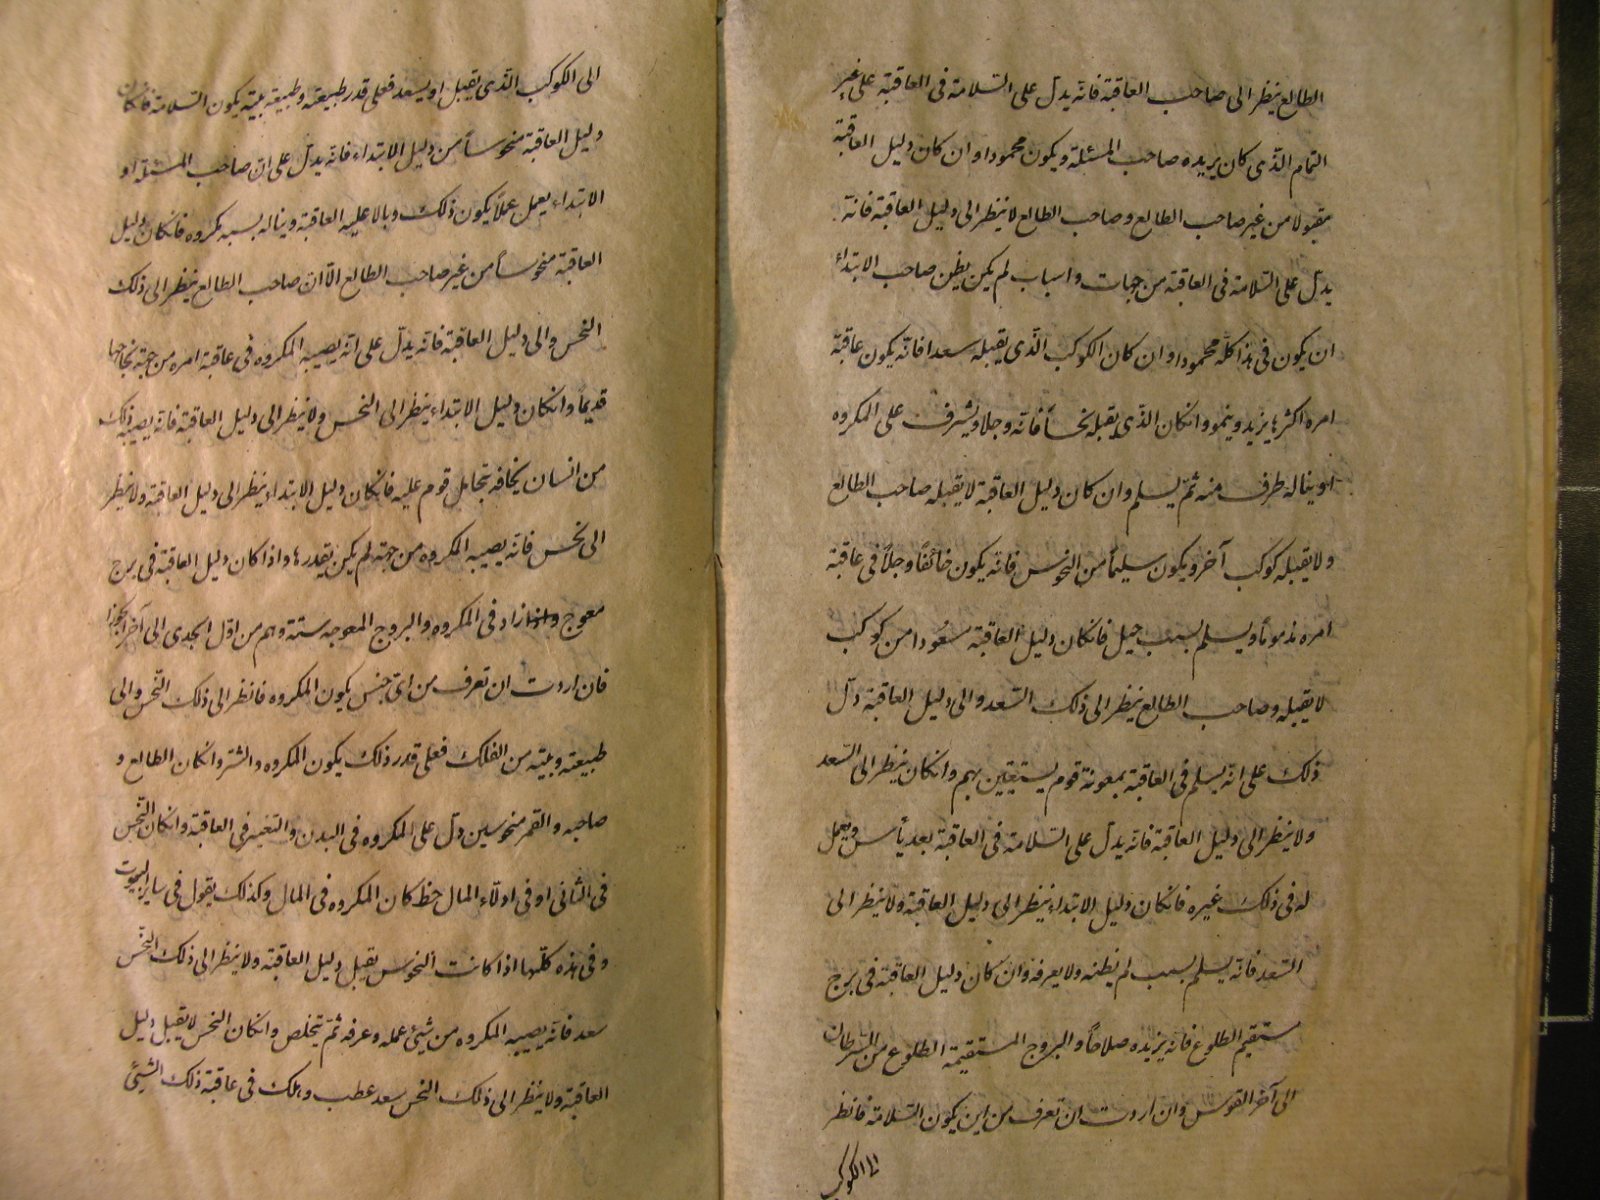 الطالع ینظر الی صاحب العاقبة فانّه یدلّ علی السّلامة فی العاقبة علی غیر
التمام الّذی کان یریده صاحب المسئلة ویکون محموداً وان کان دلیل العاقبة
مقبولا من غیر صاحب الطالع وصاحب الطالع لا ینظر الی دلیل العاقبة فانّه
یدلّ علی السّلامة فی العاقبة من جهات واسباب لم یکن یظن صاحب الابتداء
ان یکون فی هذا کلّه محموداً وان کان الکوکب الّذی یقبله سعدا فانّه یکون عاقبة
امره اکثرها یزید وینمو وانکان الّذی یقبله نحساً فانّه وجلا ویشرف علی المکروه
او یناله طرف منه ثمّ یسلم وان کان دلیل العاقبة لا یقبله صاحب الطالع
ولا یقبله کوکب آخر ویکون سلیماً من النحوس فانّه یکون خائفاً وجلاً فی عاقبة
امره مذموماً ویسلم بسبب حیل فانکان دلیل العاقبة مسعودا من کوکب
لا یقبله وصاحب الطالع ینظر الی ذلک السّعد والی دلیل العاقبة دلّ
ذلک علی انّه یسلم فی العاقبة بمعونة قوم یستعین بهم وانکان ینظر الی السّعد
ولا ینظر الی دلیل العاقبة فانّه یدلّ علی السّلامة فی العاقبة بعد یأس ویعمل
له فی ذلک غیره فانکان دلیل الابتداء ینظر الی دلیل العاقبة ولا ینظر الی
السّعد فانّه یسلم بسبب لم یظنه ولا یعرفه وان کان دلیل العاقبة فی برج
مستقیم الطلوع فانّه یزیده صلاحاً والبروج المستقیمة الطلوع من السّرطان
الی آخر القوس وان اردت ان تعرف من این یکون السّلامة فانظر
الی الکوکب
الی الکوکب الّذی یقبل او یسعد فعلی قدر طبیعته وطبیعة بیته یکون السّلامة فانکان
دلیل العاقبة منحوساً من دلیل الابتداء فانّه یدلّ علی انّ صاحب المسئلة او
الابتداء یعمل عملاً یکون ذلک وبالا علیه العاقبة ویناله بسببه مکروه فانکان دلیل
العاقبة منحوساً من غیر صاحب الطالع الّا ان صاحب الطالع ینظر الی ذلک
النحس والی دلیل العاقبة فانّه یدلّ علی انّه یصیبه المکروه فی عاقبة امره من جهة
قدیماً وانکان دلیل الابتداء ینظر الی النحس ولا ینظر الی دلیل العاقبة فانّه یصیبه ذلک
من انسان یخافه قوم علیه فانکان دلیل الابتداء ینظر الی دلیل العاقبة ولا ینظر
الی نحس فانّه یصیبه المکروه من جهة لم یکن یقدرها واذا کان دلیل العاقبة فی برج
معوج زاد فی المکروه والبروج المعوجه ستة وهم من اوّل الجدی الی آخر الجوزا
فان اردت ان تعرف من ایّ جنس یکون المکروه فانظر الی ذلک النحس والی
طبیعته وبیته من الفلک فعلی قدر ذلک یکون المکروه والشر وانکان الطالع و
صاحبه والقمر منحوسین دلّ علی المکروه فی البدن والتغیر فی العاقبة وانکان النّحس
فی الثانی او فی المال حظ کان المکروه فی المال وکذلک یقول فی سایر البیوت
وفی هذه کلّها اذا کانت النحوس یقبل دلیل العاقبة ولا ینظر الی ذلک النّحس
سعد فانّه یصیبه المکروه من شیئ عمله وعرفه ثمّ یتخلص وانکان النحس لا یقبل دلیل
العاقبة ولا ینظر الی ذلک النحس سعد عطب وهلک فی عاقبة ذلک الشیئ